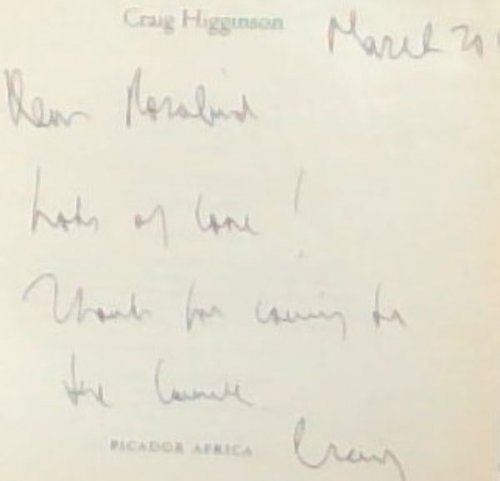 Craig Higginson
March 20
Dear Rosalind
Lots of love!
Thanks for coming to
the launch
PICADOR AFRICA
Craig